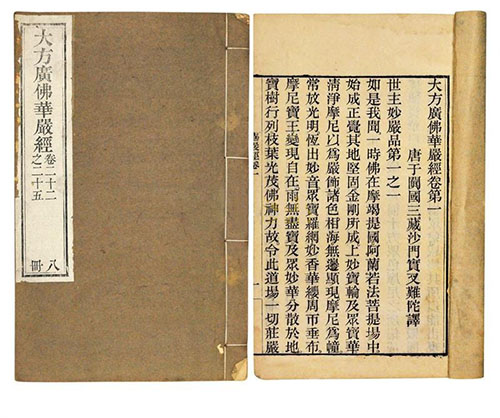 大方廣佛華嚴經
卷二十二
之二十五
八冊
大方廣佛華嚴經卷第一
唐于闐國三藏沙門實叉難陀譯
世主妙嚴品第一之一
如是我聞一時佛在摩竭提國阿蘭若法菩提場中
始成正覺其地堅固金剛所成上妙寶輪及眾寶華
清淨摩尼以爲嚴飾諸色相海無邊顯現摩尼爲幢
常放光明恒出妙音眾寶羅網妙香華纓周帀垂布
摩尼寶王變現自在雨無盡寶及眾妙華分散於地
寶樹行列枝葉光茂佛神力故令此道場一切莊嚴